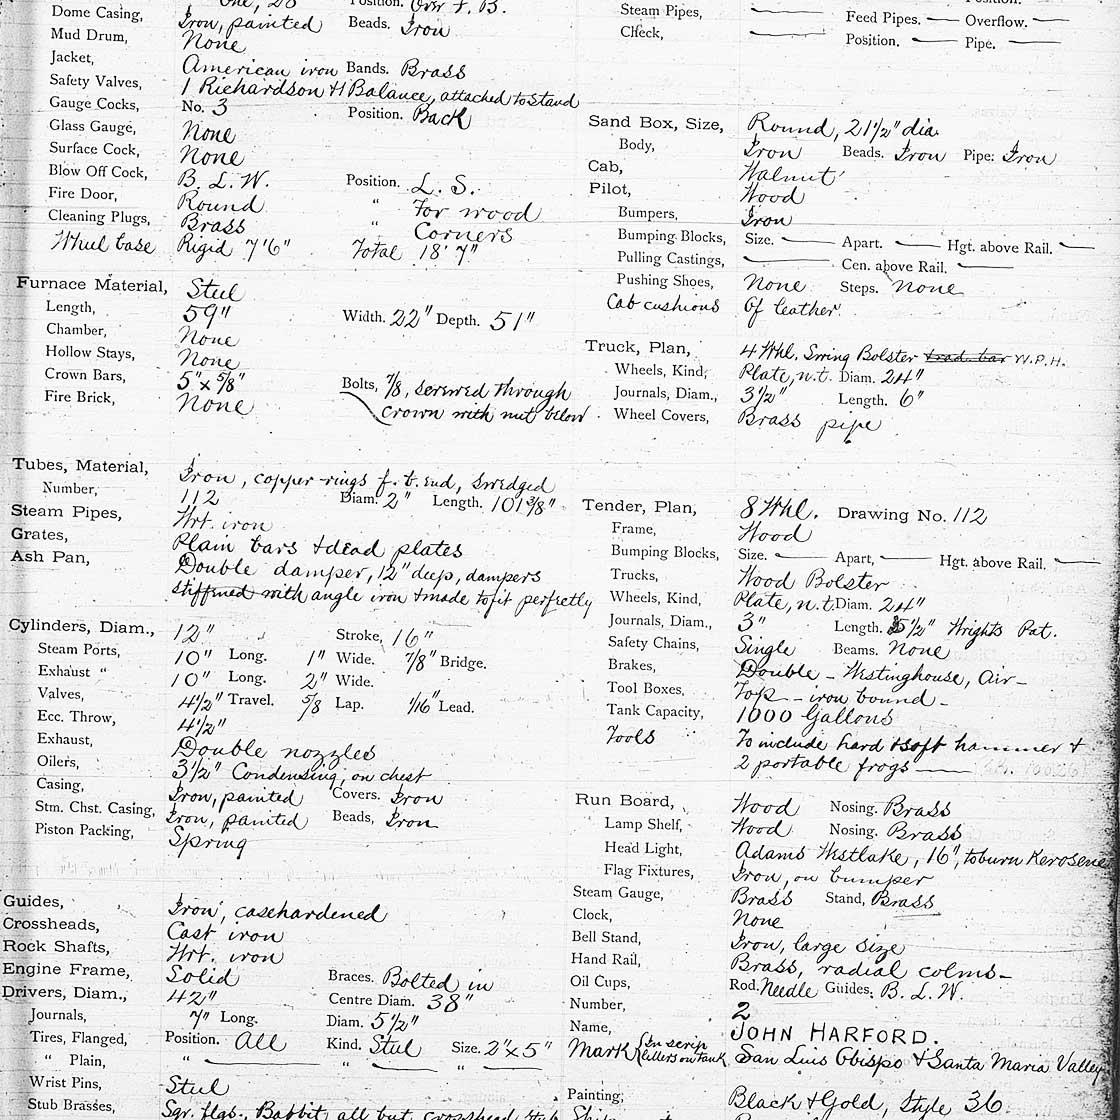 One, 26 Position. Over F. B.
Dome Casing, Iron, painted Beads. Iron
Mud Drum, None
Jacket, American iron Bands. Brass
Safety Valves, 1 Richardson + 1 Balance, attached to Stand
Gauge Cocks, No. 3 Position. Back
Glass Gauge, None
Surface Cock, None
Blow Off Cock, B. L. W. Position. L. S.
Fire Door, Round " For wood
Cleaning Plugs, Brass " Corners
Wheel base Rigid 7'6" Total 18' 7"
Furnace Material, Steel
Length, 59" Width. 22" Depth. 51"
Chamber, None
Hollow Stays, None
Crown Bars, 5" x 5/8" Bolts, 7/8, screwed through
Fire Brick, None crown with nut below
Tubes, Material, Iron, copper rings f. b. end, swedged
Number, 112 Diam. 2" Length. 101 3/8"
Steam Pipes, Wrt. iron
Grates, Plain bars + dead plates
Ash Pan, Double damper, 12" deep, dampers
stiffened with angle iron + made to fit perfectly
Cylinders, Diam., 12" Stroke, 16"
Steam Ports, 10" Long. 1" Wide. 7/8" Bridge.
Exhaust " 10" Long. 2" Wide.
Valves, 4 1/2" Travel. 5/8 Lap. 1/16" Lead.
Ecc. Throw, 4 1/2"
Exhaust, Double nozzles
Oilers, 3 1/2" Condensing, on chest
Casing, Iron, painted Covers. Iron
Stm. Chst. Casing, Iron, painted Beads, Iron
Piston Packing, Spring
Guides, Iron, casehardened
Crossheads, Cast iron
Rock Shafts, Wrt. iron
Engine Frame, Solid Braces. Bolted in
Drivers, Diam., 42" Centre Diam. 38"
Journals, 7" Long. Diam. 5 1/2"
Tires, Flanged, Position. All Kind. Steel Size. 2" x 5"
" Plain, " " "
Wrist Pins, Steel
Stub Brasses, Sqr. flgs., Babbit, all but crosshead stub
Steam Pipes, Feed Pipes. Overflow.
Check, Position. Pipe.
Sand Box, Size, Round, 21 1/2" dia.
Body, Iron Beads. Iron Pipe: Iron
Cab, Walnut
Pilot, Wood
Bumpers, Iron
Bumping Blocks, Size. Apart. Hgt. above Rail.
Pulling Castings, Cen. above Rail.
Pushing Shoes, None Steps. None
Cab cushions Of leather.
Truck, Plan, 4 Whl. Swing Bolster trad. bar W.P.H.
Wheels, Kind, Plate, n.t. Diam. 24"
Journals, Diam., 3 1/2" Length. 6"
Wheel Covers, Brass pipe
Tender, Plan, 8 Whl. Drawing No. 112
Frame, Wood
Bumping Blocks, Size. Apart, Hgt. above Rail.
Trucks, Wood Bolster
Wheels, Kind, Plate, n.t. Diam. 24"
Journals, Diam., 3" Length. 5 1/2" Wrights Pat.
Safety Chains, Single Beams. None
Brakes, Double - Westinghouse, Air -
Tool Boxes, Top - iron bound -
Tank Capacity, 1000 Gallons
Tools To include hard + soft hammer +
2 portable frogs
Run Board, Wood Nosing. Brass
Lamp Shelf, Wood Nosing. Brass
Head Light, Adams Westlake, 16", to burn Kerosene
Flag Fixtures, Iron, on bumper
Steam Gauge, Brass Stand, Brass
Clock, None
Bell Stand, Iron, large size
Hand Rail, Brass, radial colms -
Oil Cups, Rod. Needle Guides. B. L. W.
Number, 2
Name, JOHN HARFORD.
Mark (In scrip letters on tank San Luis Obispo + Santa Maria Valley
Painting, Black + Gold, Style 36